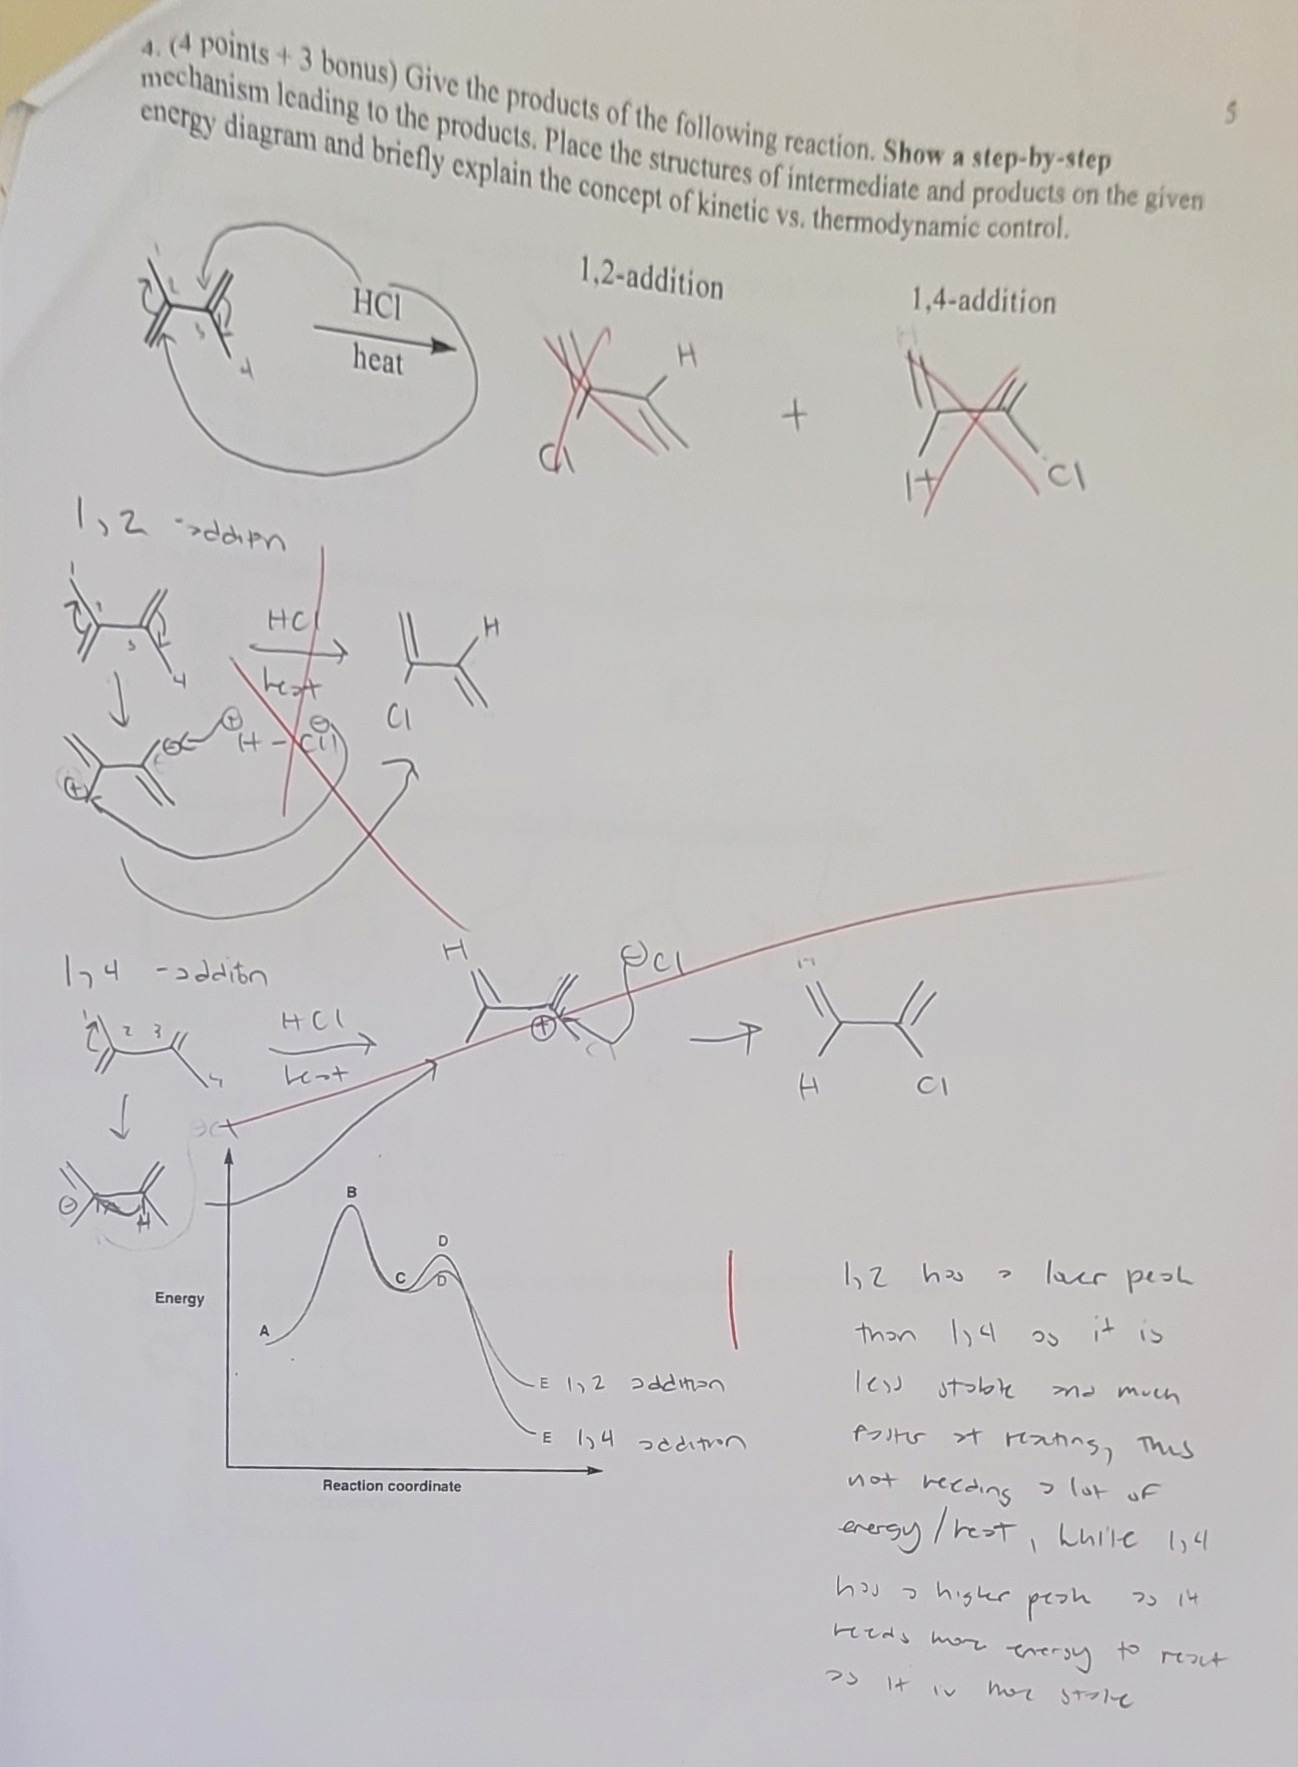 5
4. (4 points + 3 bonus) Give the products of the following reaction. Show a step-by-step
mechanism leading to the products. Place the structures of intermediate and products on the given
energy diagram and briefly explain the concept of kinetic vs. thermodynamic control.
1,2-addition
1,4-addition
1
2
3
4
HCl
heat
H
Cl
+
H
H
Cl
1,2 -addition
1
3
4
HCl
heat
H
Cl
⊕
⊕
H - Cl
⊖
1,4 -addition
1
2
3
4
HCl
heat
H
⊕
⊖Cl
H
Cl
⊖
H
B
D
C
D
Energy
A
E 1,2 addition
E 1,4 addition
Reaction coordinate
1,2 has a lower peak
than 1,4 as it is
less stable and much
faster at reacting, thus
not needing a lot of
energy/heat, while 1,4
has a higher peak as it
needs more energy to react
as it is more stable